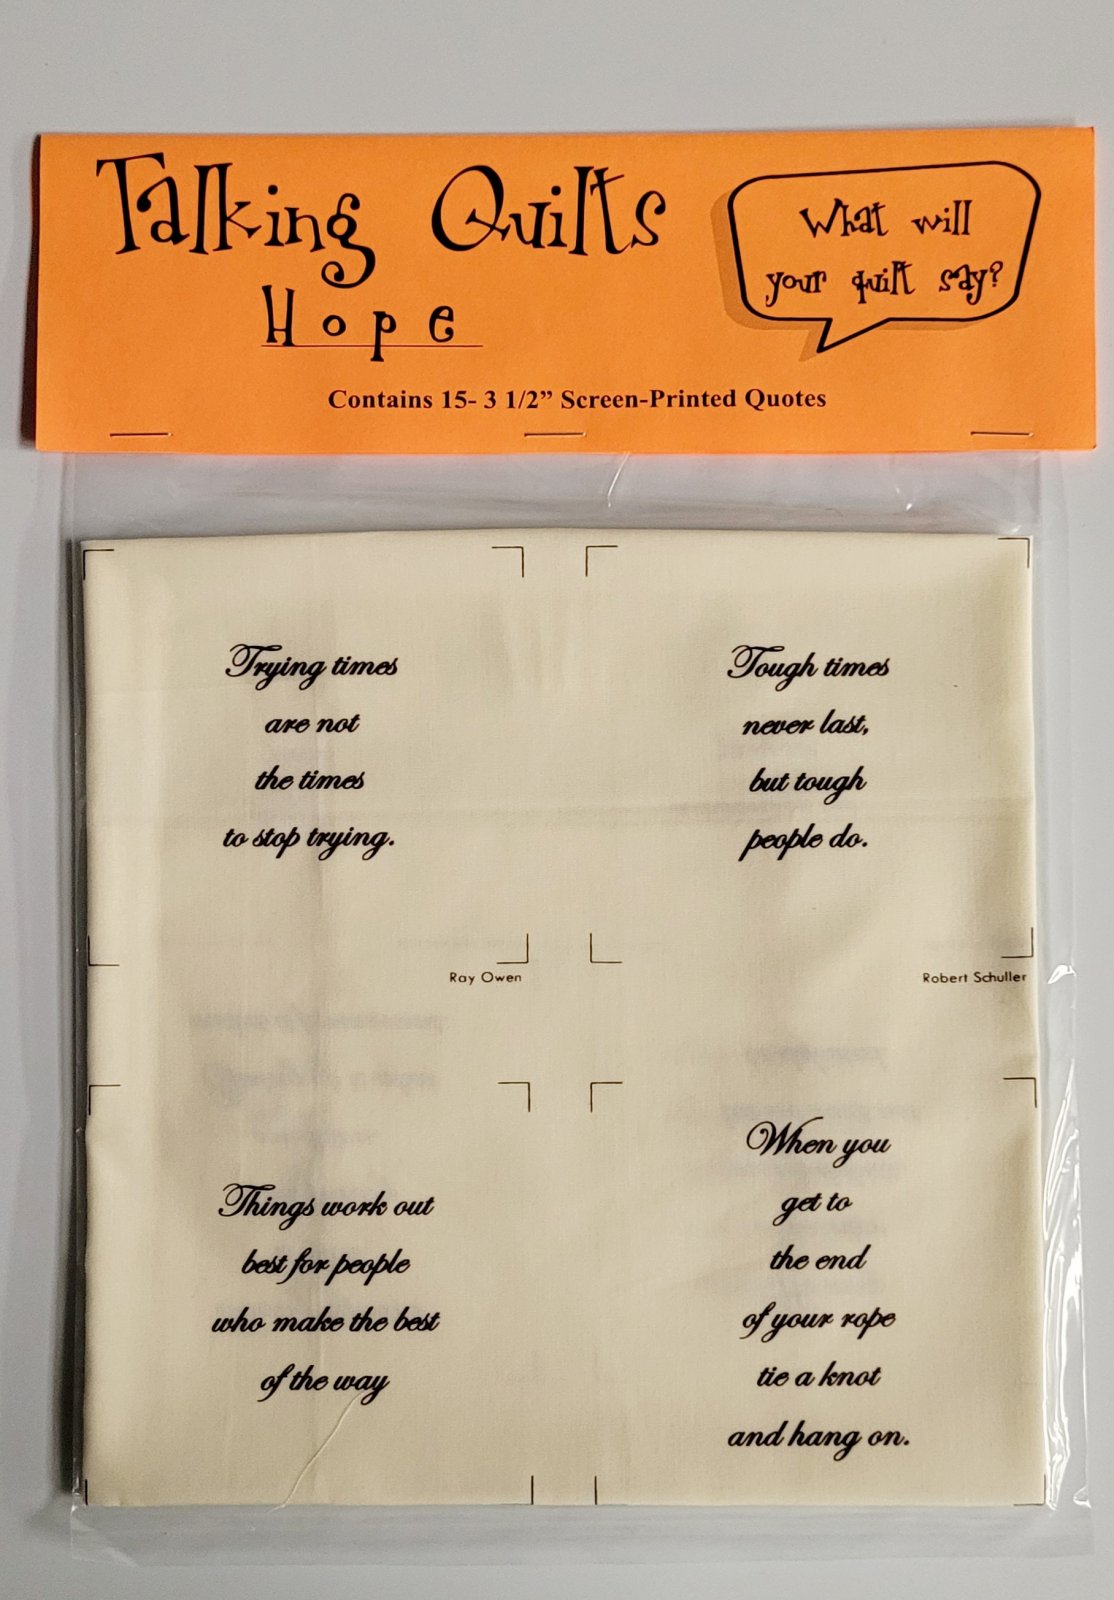 Talking Quilts
Hope
What will
your quilt say?
Contains 15- 3 1/2” Screen-Printed Quotes
Trying times
are not
the times
to stop trying.
Ray Owen
Tough times
never last,
but tough
people do.
Robert Schuller
Things work out
best for people
who make the best
of the way
When you
get to
the end
of your rope
tie a knot
and hang on.